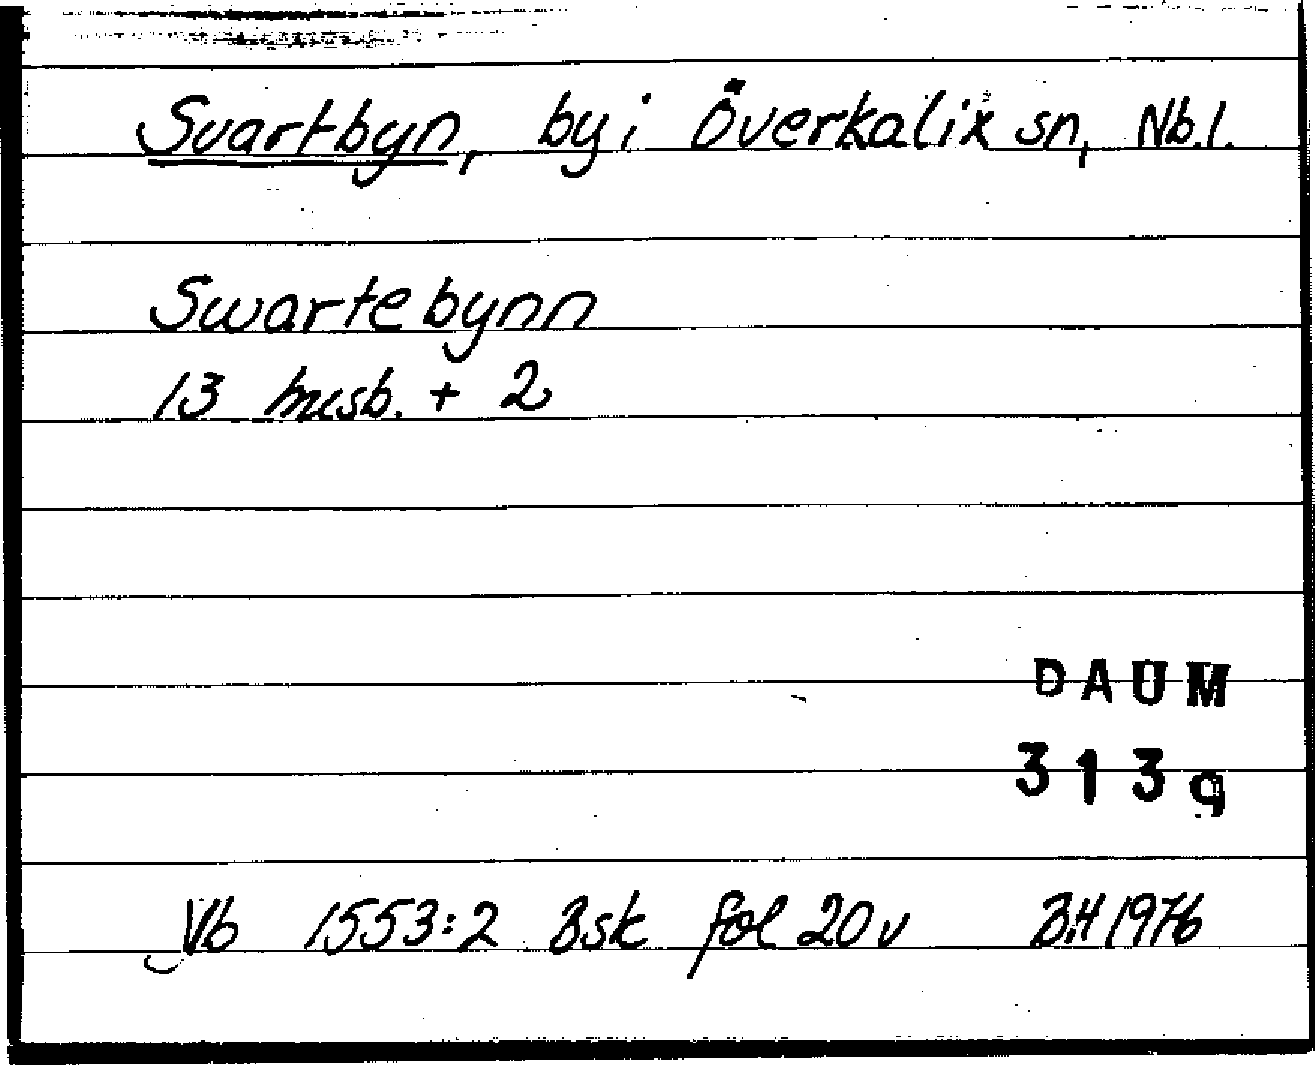 Svartbyn, by i Överkalix sn, Nb.l.
Swartebynn
13 husb. + 2
DAUM
3139
Vb 1553:2 Bsk fol 20v B.H 1976